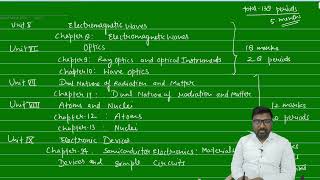 total-159 periods
5 months
Unit 5 Electromagnetic Waves
Chapter 8: Electromagnetic Waves
Unit VI Optics
18 marks
Chapter 9: Ray Optics and Optical Instruments
28 periods
Chapter 10: Wave optics
Unit VII Dual Nature of Radiation and Matter
Chapter 11: Dual Nature of radiation and Matter
Unit VIII Atoms and Nuclei
12 marks
Chapter-12: Atoms
periods
Chapter-13: Nuclei
Unit IX Electronic Devices
Chapter-14. Semiconductor Electronics: Materials
Devices and Simple Circuits